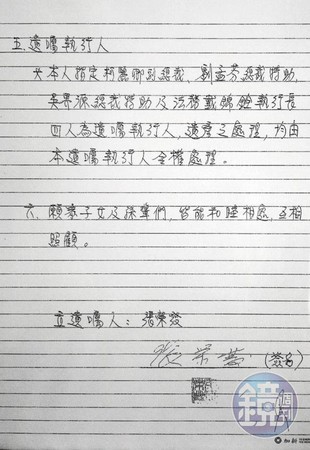 五.遺囑執行人
本人指定柯麗卿副總裁、劉孟芬總裁特助、
吳界源總裁特助及法務戴錦銓執行長
四人為遺囑執行人,遺產之處理,均由
本遺囑執行人全權處理。
六.願妻子女及孫輩們,皆能和睦相處,互相
照顧。
立遺囑人:張榮發
張榮發 (簽名)
鏡週刊